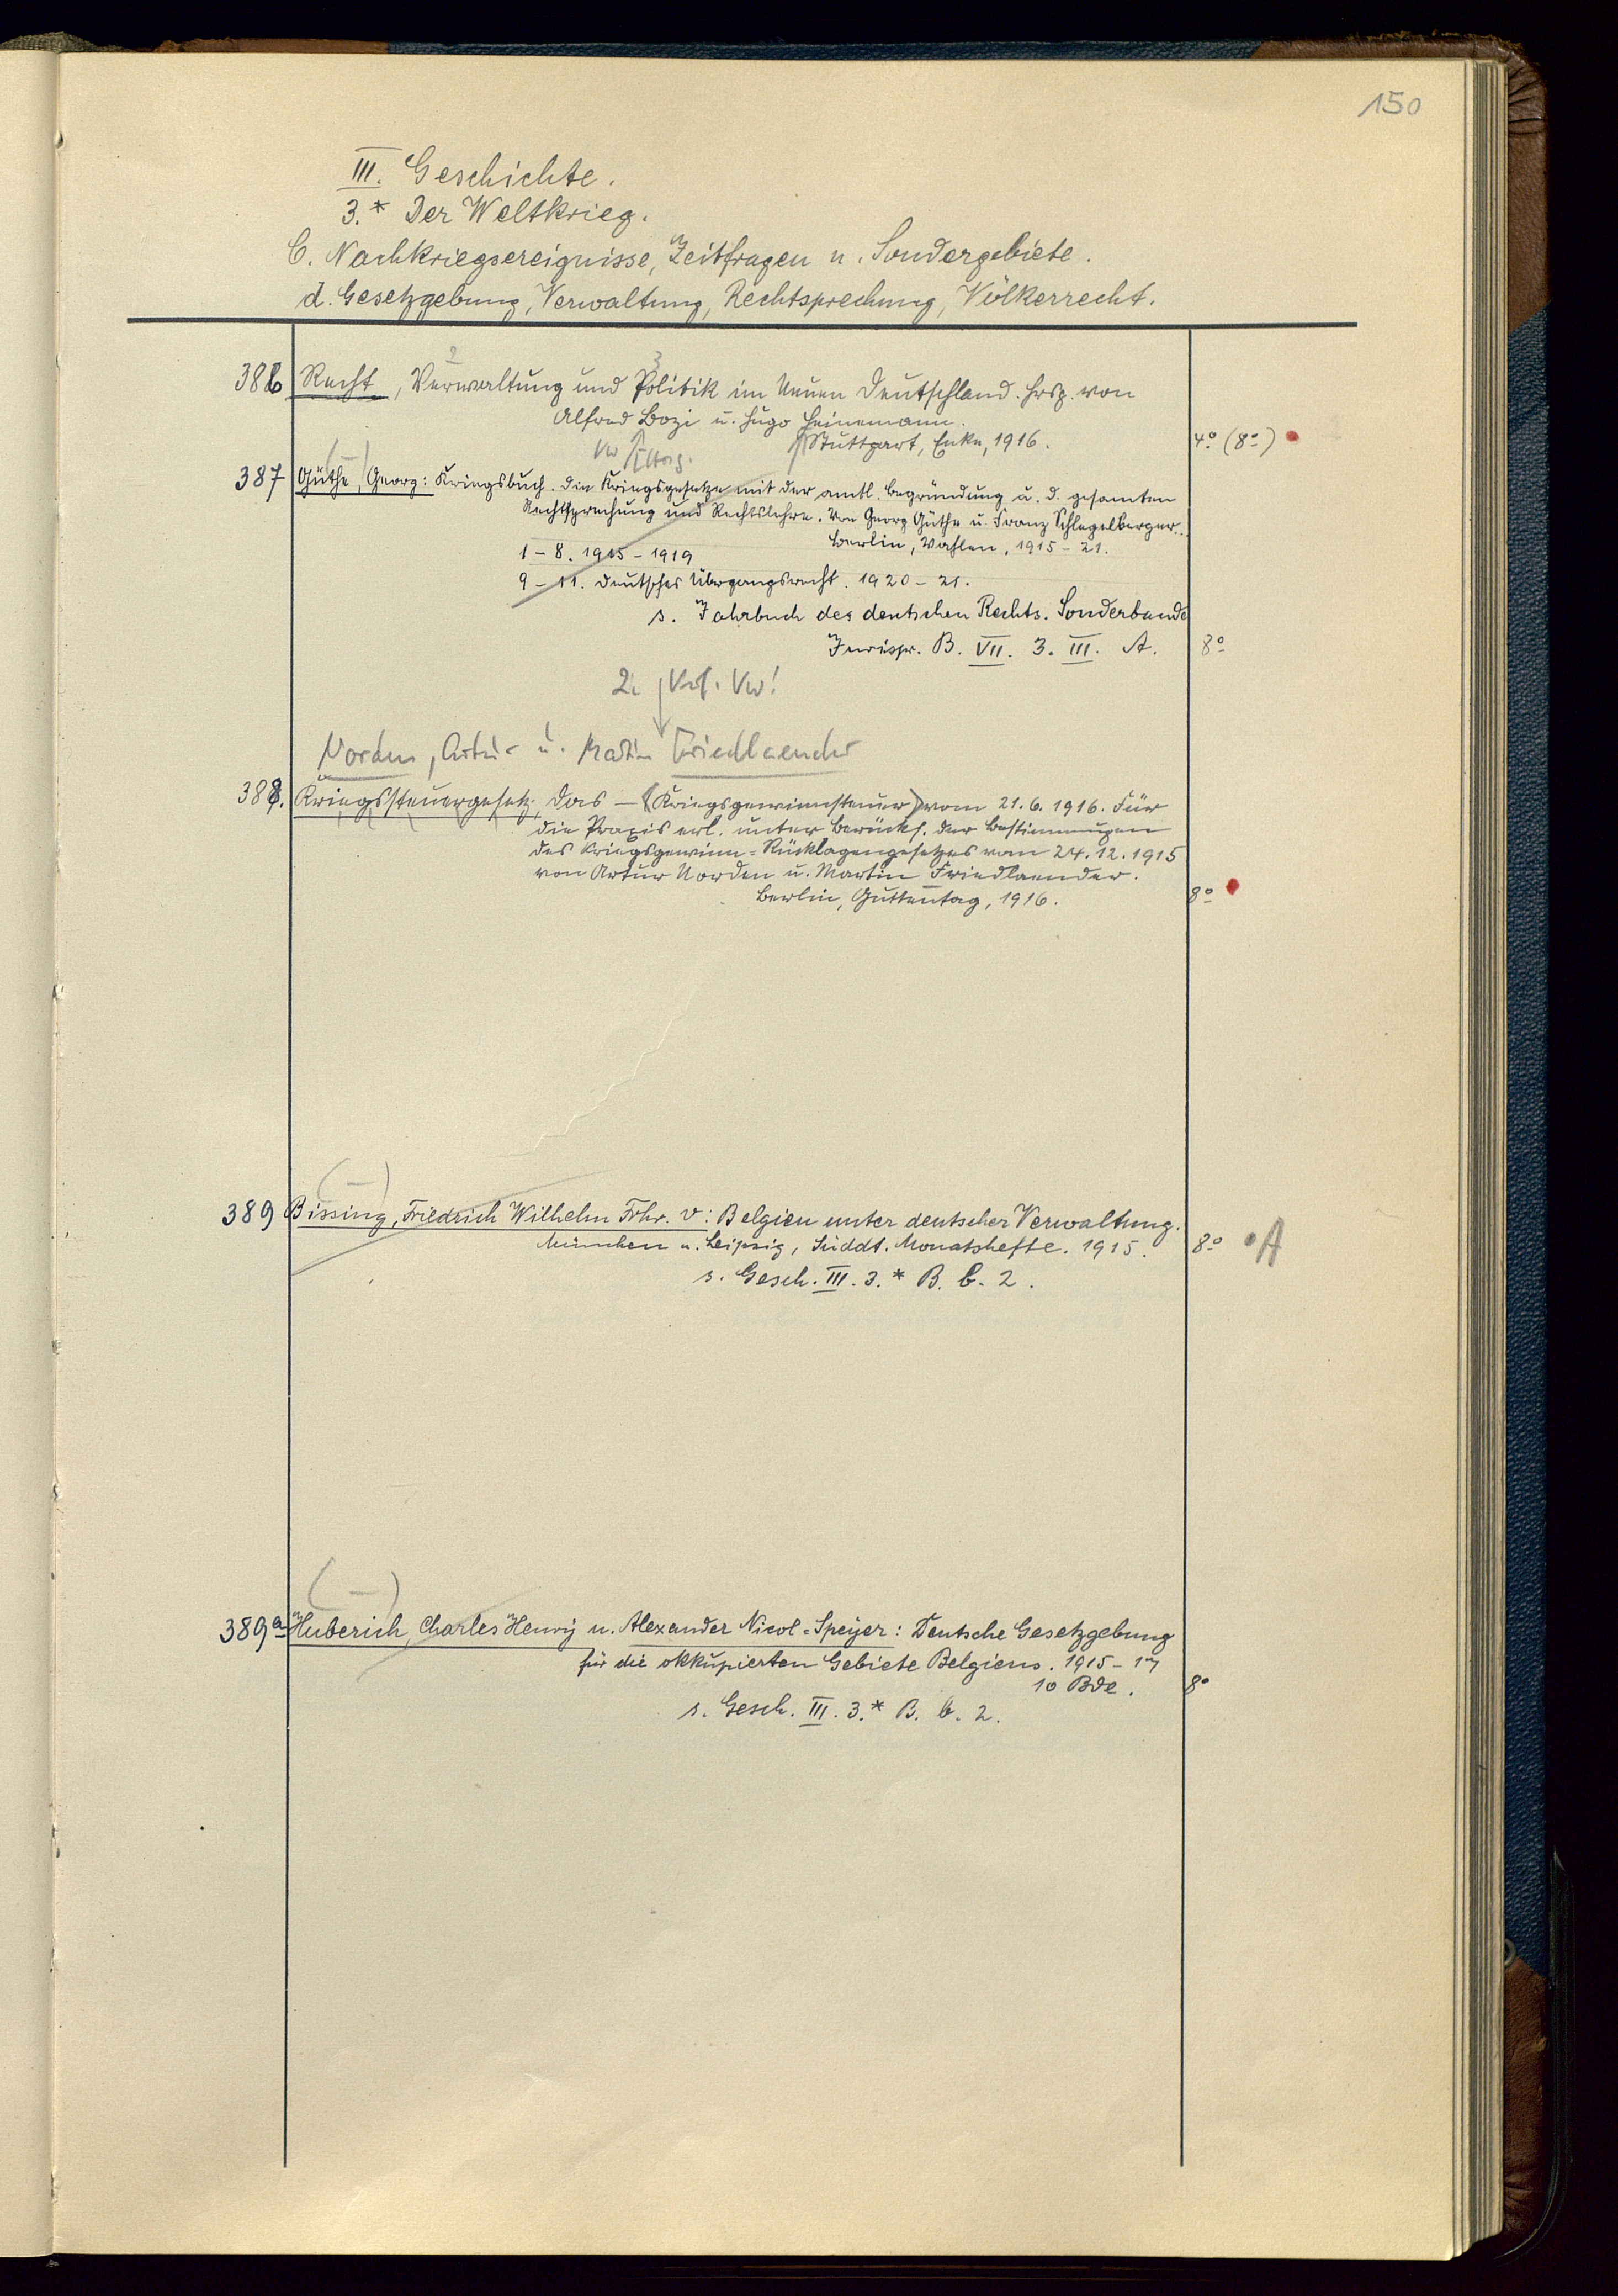 150
III. Geschichte.
3.* Der Weltkrieg.
C. Nachkriegsereignisse, Zeitfragen u. Sondergebiete.
d. Gesetzgebung, Verwaltung, Rechtsprechung, Völkerrecht.
2 3
386 Recht, Verwaltung und Politik im Neuen Deutschland. Hrsg. von
Alfred Bozi u. Hugo Heinemann.
Stuttgart, Enke, 1916. 4º (8º)
Vw
(—)
387 Güthe, Georg: Kriegsbuch. Die Kriegsgesetze mit der amtl. Begründung u. d. gesamten
Rechtsprechung und Rechtslehre. Von Georg Güthe u. Franz Schlegelberger...
Berlin, Vahlen, 1915-21.
1-8. 1915-1919
9-11. Deutsches Übergangsrecht. 1920-21.
s. Jahrbuch des deutschen Rechts. Sonderbände
Jurispr. B. VII. 3. III. A. 8º
2. Verf. Vw!
Norden, Artur u. Martin Friedlaender
388. Kriegssteuergesetz, das — (Kriegsgewinnsteuer) vom 21.6.1916. Für
die Praxis erl. unter Berücks. der Bestimmungen
des Kriegsgewinn-Rücklagengesetzes vom 24.12.1915
von Artur Norden u. Martin Friedlaender.
Berlin, Guttentag, 1916. 8º
(—)
389 Bissing, Friedrich Wilhelm Frhr. v: Belgien unter deutscher Verwaltung.
München u. Leipzig, Süddt. Monatshefte. 1915. 8º A
s. Gesch. III. 3.* B. b. 2.
(—)
389a Huberich, Charles Henry u. Alexander Nicol-Speyer: Deutsche Gesetzgebung
für die okkupierten Gebiete Belgiens. 1915-17
10 Bde. 8º
s. Gesch. III. 3.* B. b. 2.